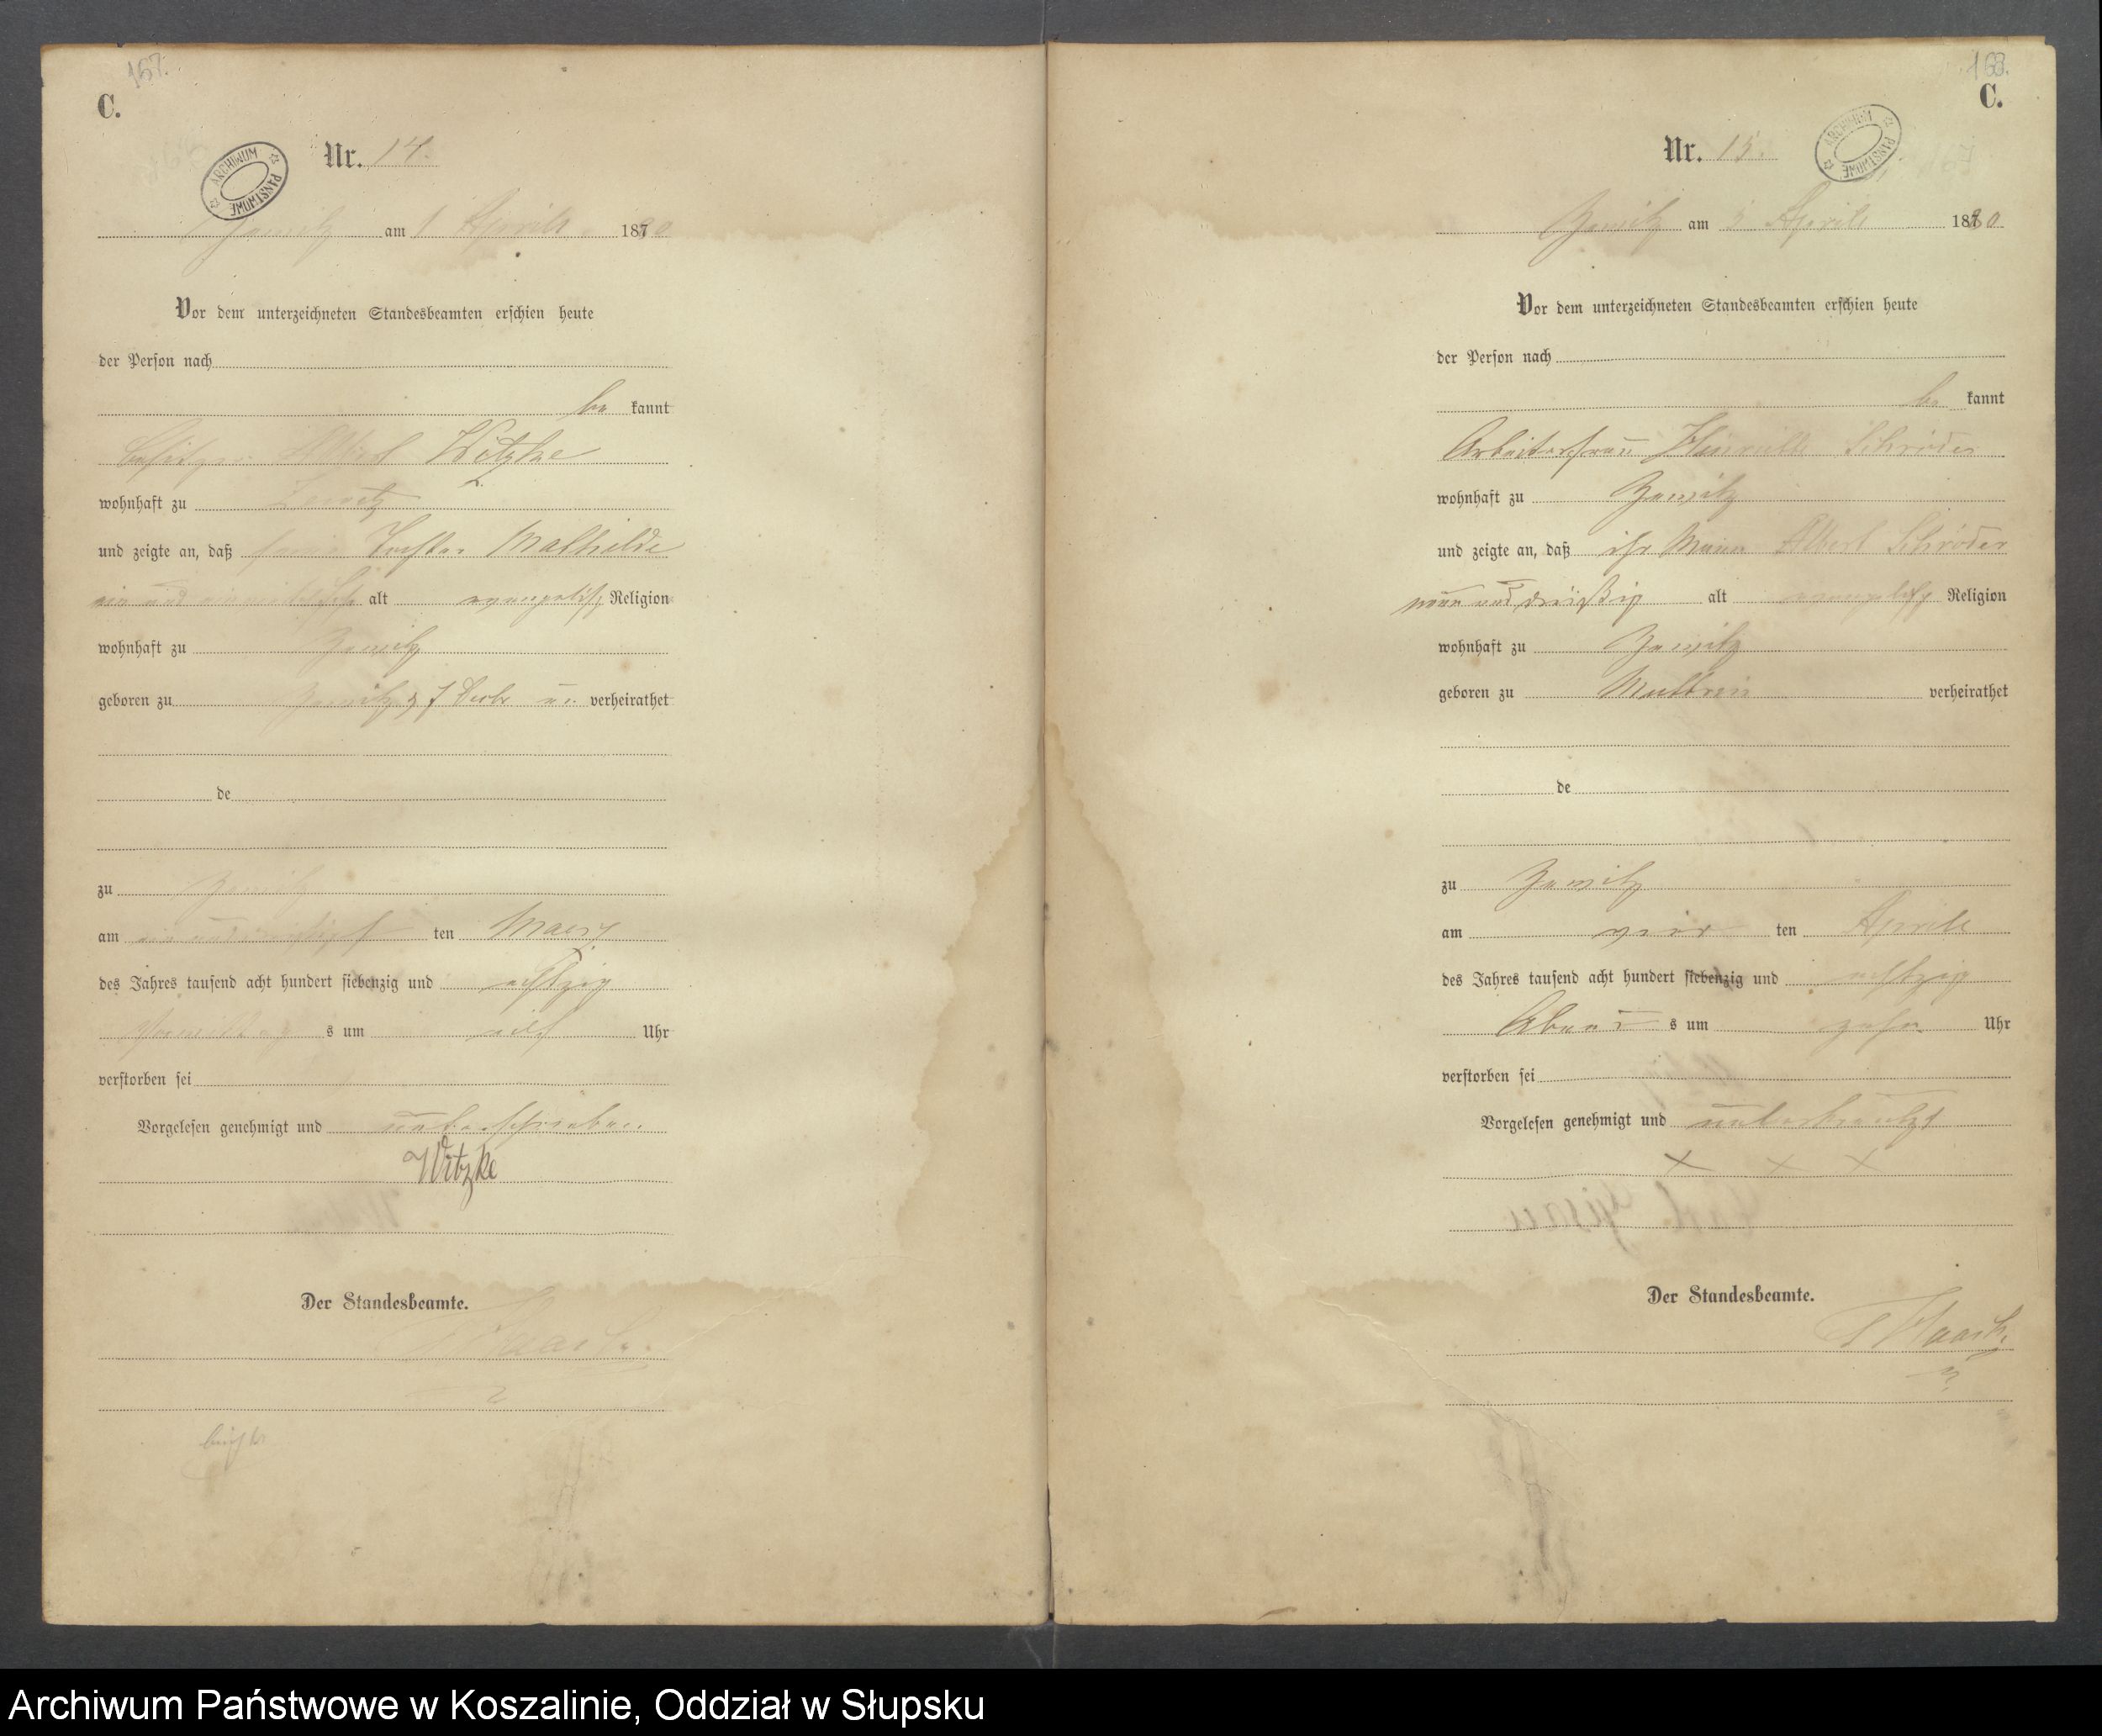 167.
C.
ARCHIWUM PAŃSTWOWE
Nr. 14.
Zewitz am 1 Aprill 1880
Vor dem unterzeichneten Standesbeamten erschien heute
der Person nach
be kannt
Besitzer Albert Witzke
wohnhaft zu Zewitz
und zeigte an, daß seine Tochter Mathilde
ein und alt evangelisch Religion
wohnhaft zu Zewitz
geboren zu Zewitz un verheirathet
de
zu Zewitz
am ein und dreißigst ten Maerz
des Jahres tausend acht hundert siebenzig und achtzig
Vormittag s um Uhr
verstorben sei
Vorgelesen genehmigt und unterschrieben
Witzke
Der Standesbeamte.
Haack.
163.
C.
ARCHIWUM PAŃSTWOWE
Nr. 15.
Zewitz am 5 Aprill 1880
Vor dem unterzeichneten Standesbeamten erschien heute
der Person nach
be kannt
Arbeiterfrau Henriette Schröder
wohnhaft zu Zewitz
und zeigte an, daß ihr Mann Albert Schröder
neun und dreißig alt evangelisch Religion
wohnhaft zu Zewitz
geboren zu verheirathet
de
zu Zewitz
am vier ten Aprill
des Jahres tausend acht hundert siebenzig und achtzig
Abend s um zehn Uhr
verstorben sei
Vorgelesen genehmigt und unterkreutzt
x x x
Der Standesbeamte.
Haack.
Archiwum Państwowe w Koszalinie, Oddział w Słupsku